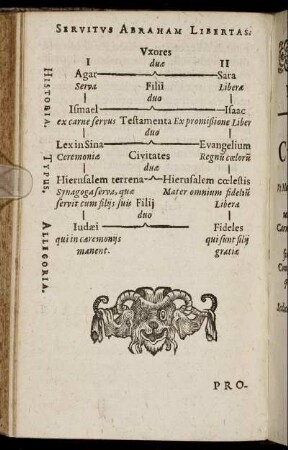 SERVITVS ABRAHAM LIBERTAS:
Vxores
I duæ II
Agar Sara
Serva Filii Liberæ
duo
Ismael Isaac
ex carne servus Testamenta Ex promißione Liber
duo
Lex in Sina Evangelium
Ceremoniæ Civitates Regnũ cœlorũ
duæ
Hierusalem terrena Hierusalem cœlestis
Synagoga serva, quæ Mater omnium fideliũ
servit cum filijs suis Filij Libera
duo
Iudæi Fideles
qui in cæremonijs qui sunt filij
manent. gratiæ
HISTORIA.
TYPVS.
ALLEGORIA.
PRO-